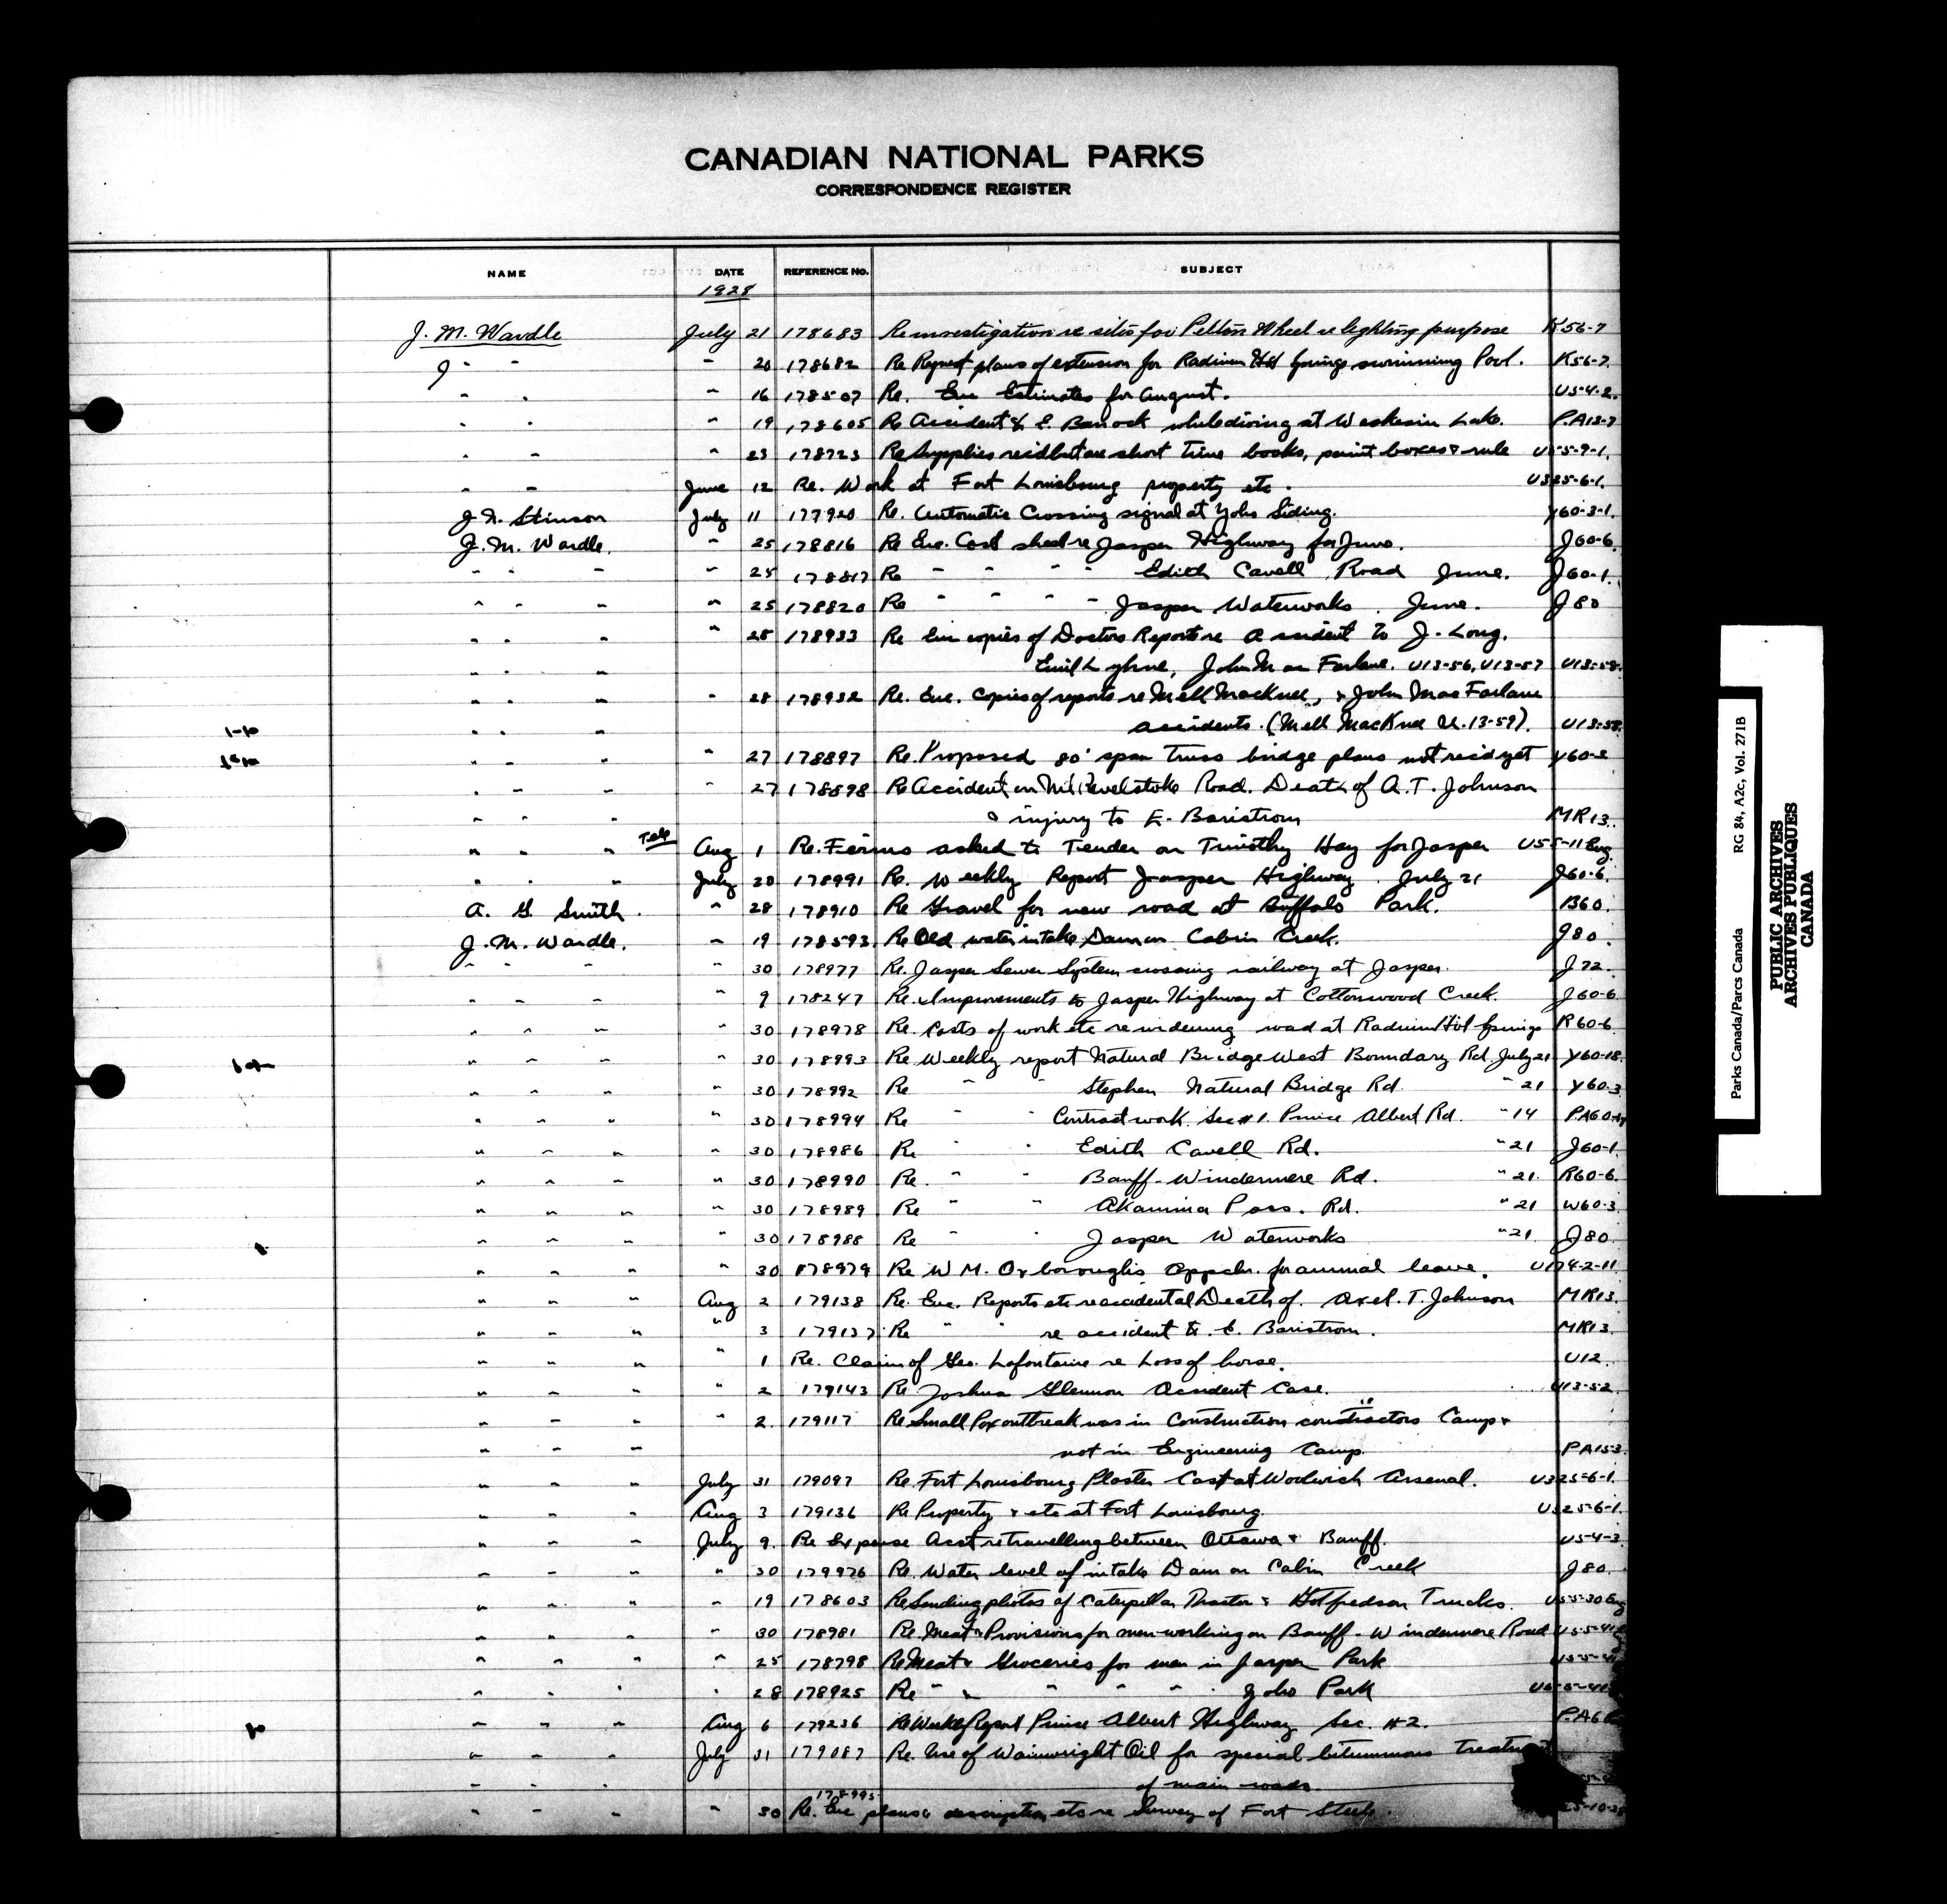 CANADIAN NATIONAL PARKS
CORRESPONDENCE REGISTER
NAME DATE REFERENCE No. SUBJECT
1928
J. M. Wardle July 21 178683 Re investigation re sites for Pelton Wheel re lighting purpose K56-7
J " " " 20 178682 Re Request plans of extension for Radium Hot Springs swimming Pool. K56-7.
" " " 16 178507 Re. Enc Estimates for August. U5-4-2.
" " " 19 178605 Re Accident to E. Barrock while diving at Waskesiu Lake. P.A13-7
" " " 23 178723 Re Supplies recd but are short time books, paint boxes & rule U5-5-9-1.
" " June 12 Re. Work at Fort Louisbourg property etc. U325-6-1.
J. N. Stinson July 11 177920 Re. Automatic Crossing signal at Yoho Siding. Y60-3-1.
J. M. Wardle. " 25 178816 Re Enc. Cost shed re Jasper Highway for June. J60-6.
" " " " 25 178817 Re " " " " Edith Cavell Road June. J60-1.
" " " " 25 178820 Re " " " " Jasper Waterworks. June. J80
" " " " 28 178933 Re Enc copies of Doctors Report re Accident to J. Long.
" " " Emil Lyhne, John MacFarlane. U13-56, U13-57 U13-58.
" " " " 28 178932 Re. Enc. Copies of reports re Mell MacKnee, & John MacFarlane
" " " accidents. (Mell MacKnee U.13-59). U13-58.
" " " " 27 178897 Re. Proposed 80' span truss bridge plans not recd yet Y60-2
" " " " 27 178898 Re Accident on Mt Revelstoke Road. Death of A.T. Johnson
" " " & injury to E. Baristrom MR13.
" " " Tele Aug 1 Re. Firms asked to Tender on Timothy Hay for Jasper U5-5-11 Eng.
" " " July 28 178991 Re. Weekly Report Jasper Highway. July 21 J60-6.
A. G. Smith. " 28 178910 Re Gravel for new road at Buffalo Park. B60.
J. M. Wardle. " 19 178593 Re Old water intake Dam on Cabin Creek. J80.
" " " " 30 178977 Re. Jasper Sewer System crossing railway at Jasper. J72.
" " " " 9 178247 Re. Improvements to Jasper Highway at Cottonwood Creek. J60-6.
" " " " 30 178978 Re. Costs of work etc re widening road at Radium Hot Springs R60-6.
" " " " 30 178993 Re Weekly report Natural Bridge West Boundary Rd. July 21 Y60-18.
" " " " 30 178992 Re " " Stephen Natural Bridge Rd. " 21 Y60-3
" " " " 30 178994 Re " " Contract work. Sec #1. Prince Albert Rd. " 14 PA60-
" " " " 30 178986 Re " " Edith Cavell Rd. " 21 J60-1.
" " " " 30 178990 Re. " " Banff-Windermere Rd. " 21. R60-6.
" " " " 30 178989 Re " " Akamina Pass. Rd. " 21 W60-3.
" " " " 30 178988 Re " " Jasper Waterworks " 21 J80.
" " " " 30 878979 Re W M. Oxborough's Appcln. for annual leave. U174-2-11.
" " " Aug 2 179138 Re. Enc. Reports etc re accidental Death of. Axel. T. Johnson MR13.
" " " " 3 179137 Re " " re accident to E. Baristrom. MR13.
" " " " 1 Re. Claim of Geo. Lafontaine re Loss of horse. U12.
" " " " 2 179143 Re Joshua Glennon Accident Case. U13-52.
" " " " 2. 179117 Re Small Pox outbreak was in Construction contractors Camp &
" " " not in Engineering Camp. PA13-3.
" " " July 31 179097 Re. Fort Louisbourg Plaster Cast at Woolwich Arsenal. U325-6-1.
" " " Aug 3 179136 Re Property & etc at Fort Louisbourg. U325-6-1.
" " " July 9. Re Expense Acct re travelling between Ottawa & Banff. U5-4-3.
" " " " 30 179976 Re. Water level of intake Dam on Cabin Creek J80.
" " " " 19 178603 Re Sending photos of Caterpillar Tractor & Gotfredson Trucks. U5-5-30 Eng
" " " " 30 178981 Re. Meat & Provisions for men working on Banff-Windermere Road U5-5-41
" " " " 25 178798 Re Meat & Groceries for men in Jasper Park U5-5-41
" " " " 28 178925 Re " & " " " " Yoho Park U5-5-41
" " " Aug 6 179236 Re Weekly Report Prince Albert Highway Sec. #2. P.A6
" " " July 31 179087 Re. Use of Wainwright Oil for special bituminous treatment
" " " of main roads.
" " " " 30 178995 Re. Enc plans & description etc re Survey of Fort Steele.
Parks Canada/Parcs Canada RG 84, A2c, Vol. 271B
PUBLIC ARCHIVES
ARCHIVES PUBLIQUES
CANADA